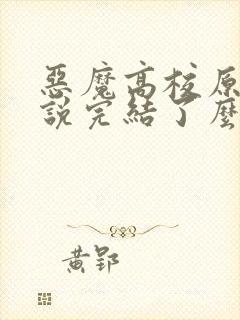 惡魔高校原
說完結了麼
黃郢